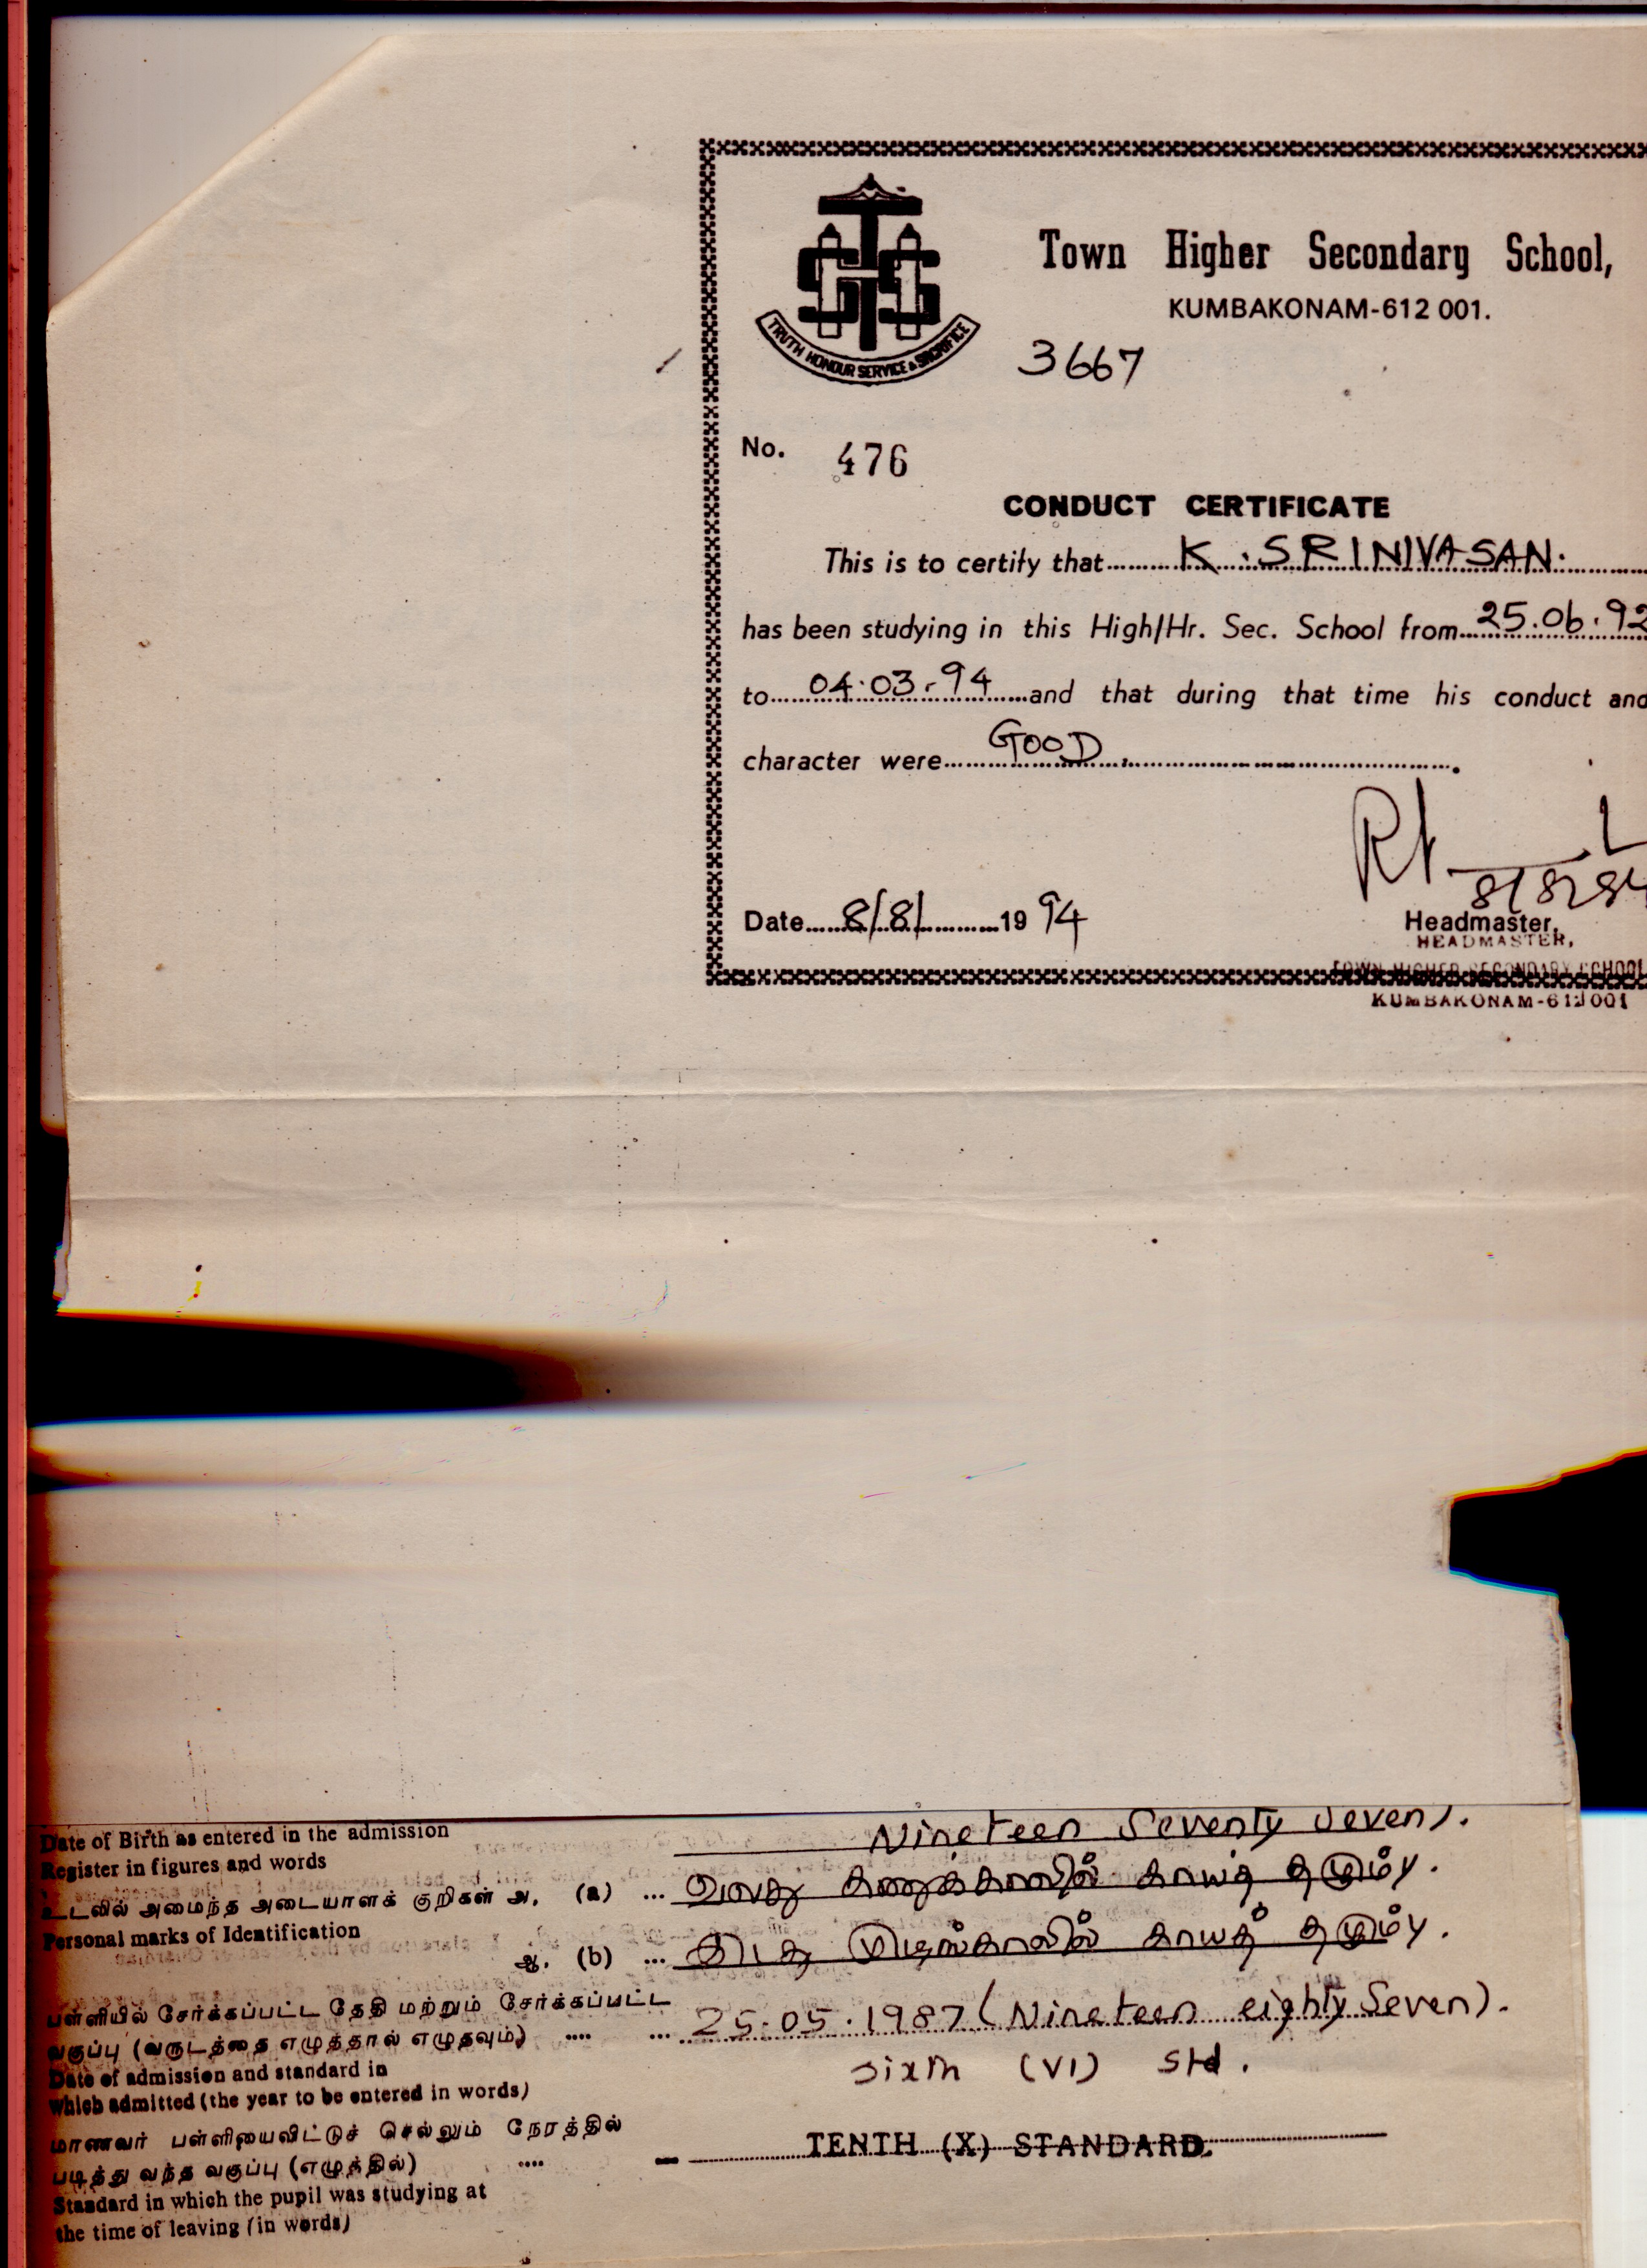 Town Higher Secondary School,
KUMBAKONAM-612 001.
TRUTH HONOUR SERVICE & SACRIFICE
3667
No. 476
CONDUCT CERTIFICATE
This is to certify that K. SRINIVASAN.
has been studying in this High/Hr. Sec. School from 25.06.92
to 04.03.94 and that during that time his conduct and
character were GOOD.
Date 8/8/ 1994
Headmaster,
HEADMASTER,
TOWN HIGHER SECONDARY SCHOOL
KUMBAKONAM-612001
Date of Birth as entered in the admission
Nineteen Seventy Seven).
Register in figures and words
உடலில் அமைந்த அடையாளக் குறிகள் அ. (a) ... வலது கணுக்காலில் காயத் தழும்பு.
Personal marks of Identification
ஆ. (b) ... இடது முழங்காலில் காயத் தழும்பு.
பள்ளியில் சேர்க்கப்பட்ட தேதி மற்றும் சேர்க்கப்பட்ட
வகுப்பு (வருடத்தை எழுத்தால் எழுதவும்) .... ... 25.05.1987 (Nineteen eighty Seven).
Date of admission and standard in
Sixth (VI) Std.
which admitted (the year to be entered in words)
மாணவர் பள்ளியைவிட்டுச் செல்லும் நேரத்தில்
படித்து வந்த வகுப்பு (எழுத்தில்) .... TENTH (X) STANDARD.
Standard in which the pupil was studying at
the time of leaving (in words)